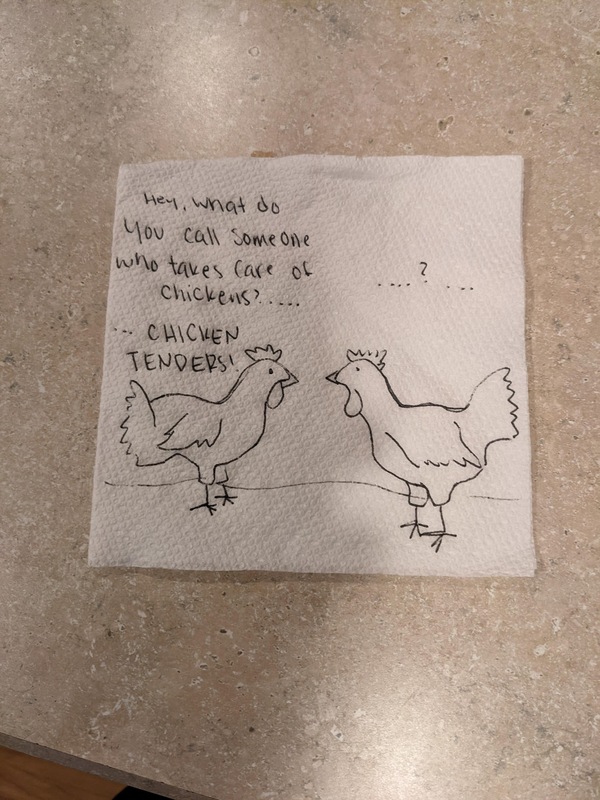 Hey, what do
you call someone
who takes care of
chickens?.....
....?....
... CHICKEN
TENDERS!